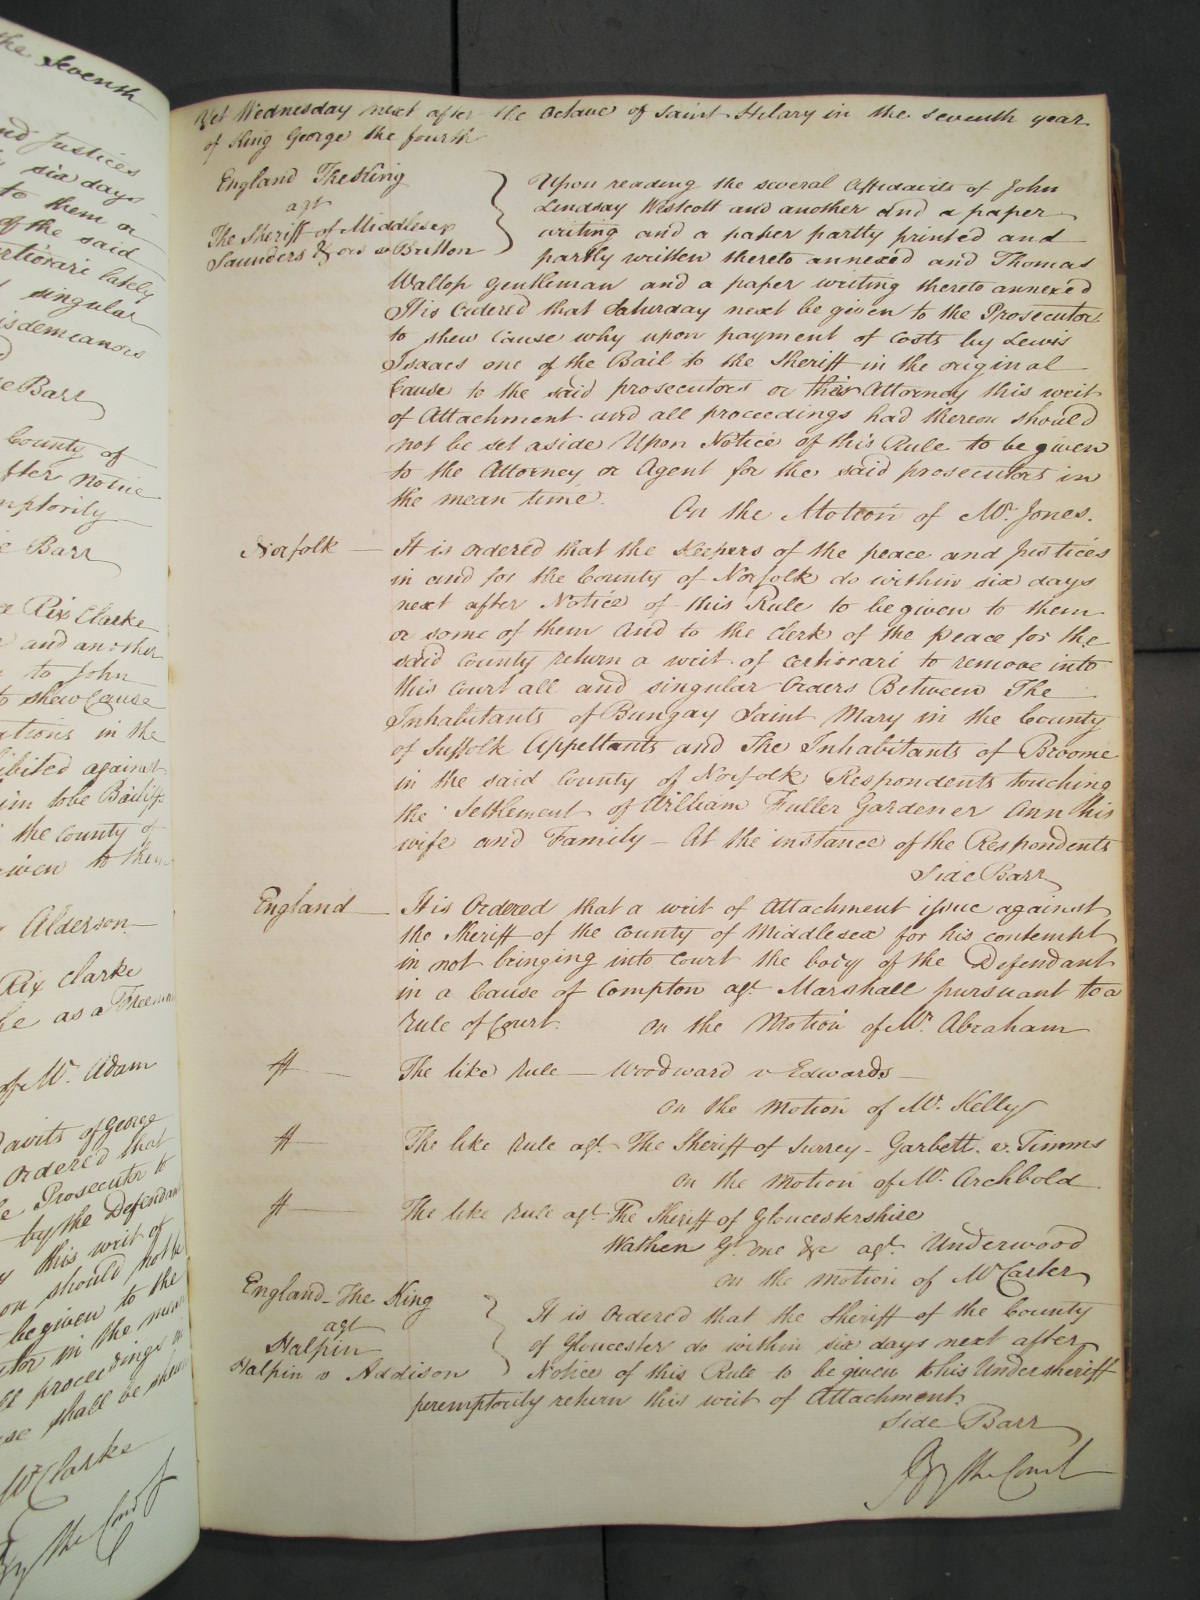 the Seventh
nd Justices
six days
to them or
of the said
certiorari lately
singular
isdemeanors
e Barr
County of
fter notice
mptorily
e Barr
Rix Clarke
and another
to John
to shew Cause
ations in the
ibited against
im to be Bailiff
the County of
iven to them
Alderson
Rix Clarke
he as a Freeman
of Mr. Adam
avits of George
ordered that
e Prosecutor to
by the Defendant
this writ of
on should not be
be given to the
utor in the mean
ll proceedings
se shall be shewn
Mr Clarke
By the Court
Yet Wednesday next after the Octave of Saint Hilary in the seventh year
of King George the fourth
England The King
agt
The Sheriff of Middlesex
Saunders & ors v Button
Upon reading the several Affidavits of John
Lindsay Westcott and another and a paper
writing and a paper partly printed and
partly written thereto annexed and Thomas
Wallop Gentleman and a paper writing thereto annexed
It is Ordered that Saturday next be given to the Prosecutor
to shew cause why upon payment of costs by Lewis
Isaacs one of the Bail to the Sheriff in the original
Cause to the said prosecutors or their Attorney this writ
of Attachment and all proceedings had thereon should
not be set aside Upon Notice of this Rule to be given
to the Attorney or Agent for the said prosecutors in
the mean time.
On the Motion of Mr. Jones.
Norfolk — It is ordered that the Keepers of the peace and Justices
in and for the County of Norfolk do within six days
next after Notice of this Rule to be given to them
or some of them and to the Clerk of the peace for the
said County return a writ of certiorari to remove into
this Court all and singular Orders Between The
Inhabitants of Bungay Saint Mary in the County
of Suffolk Appellants and The Inhabitants of Broome
in the said County of Norfolk Respondents touching
the Settlement of William Fuller Gardener Ann his
wife and Family — At the instance of the Respondents
Side Barr
England — It is Ordered that a writ of Attachment issue against
the Sheriff of the County of Middlesex for his contempt
in not bringing into Court the body of the Defendant
in a Cause of Compton agt. Marshall pursuant to a
Rule of Court. On the Motion of Mr. Abraham
The like rule — Woodward v Edwards —
On the Motion of Mr. Kelly
The like rule agt. The Sheriff of Surrey - Garbett. v. Timms
On the Motion of Mr. Archbold
The like rule agt. The Sheriff of Gloucestershire
Wathen Gt. One &c agt. Underwood
On the Motion of Mr Carter
England - The King
agt
Halpin
Halpin v Addison
It is Ordered that the Sheriff of the County
of Gloucester do within six days next after
Notice of this Rule to be given to his Undersheriff
peremptorily return this writ of Attachment.
Side Barr
By the Court